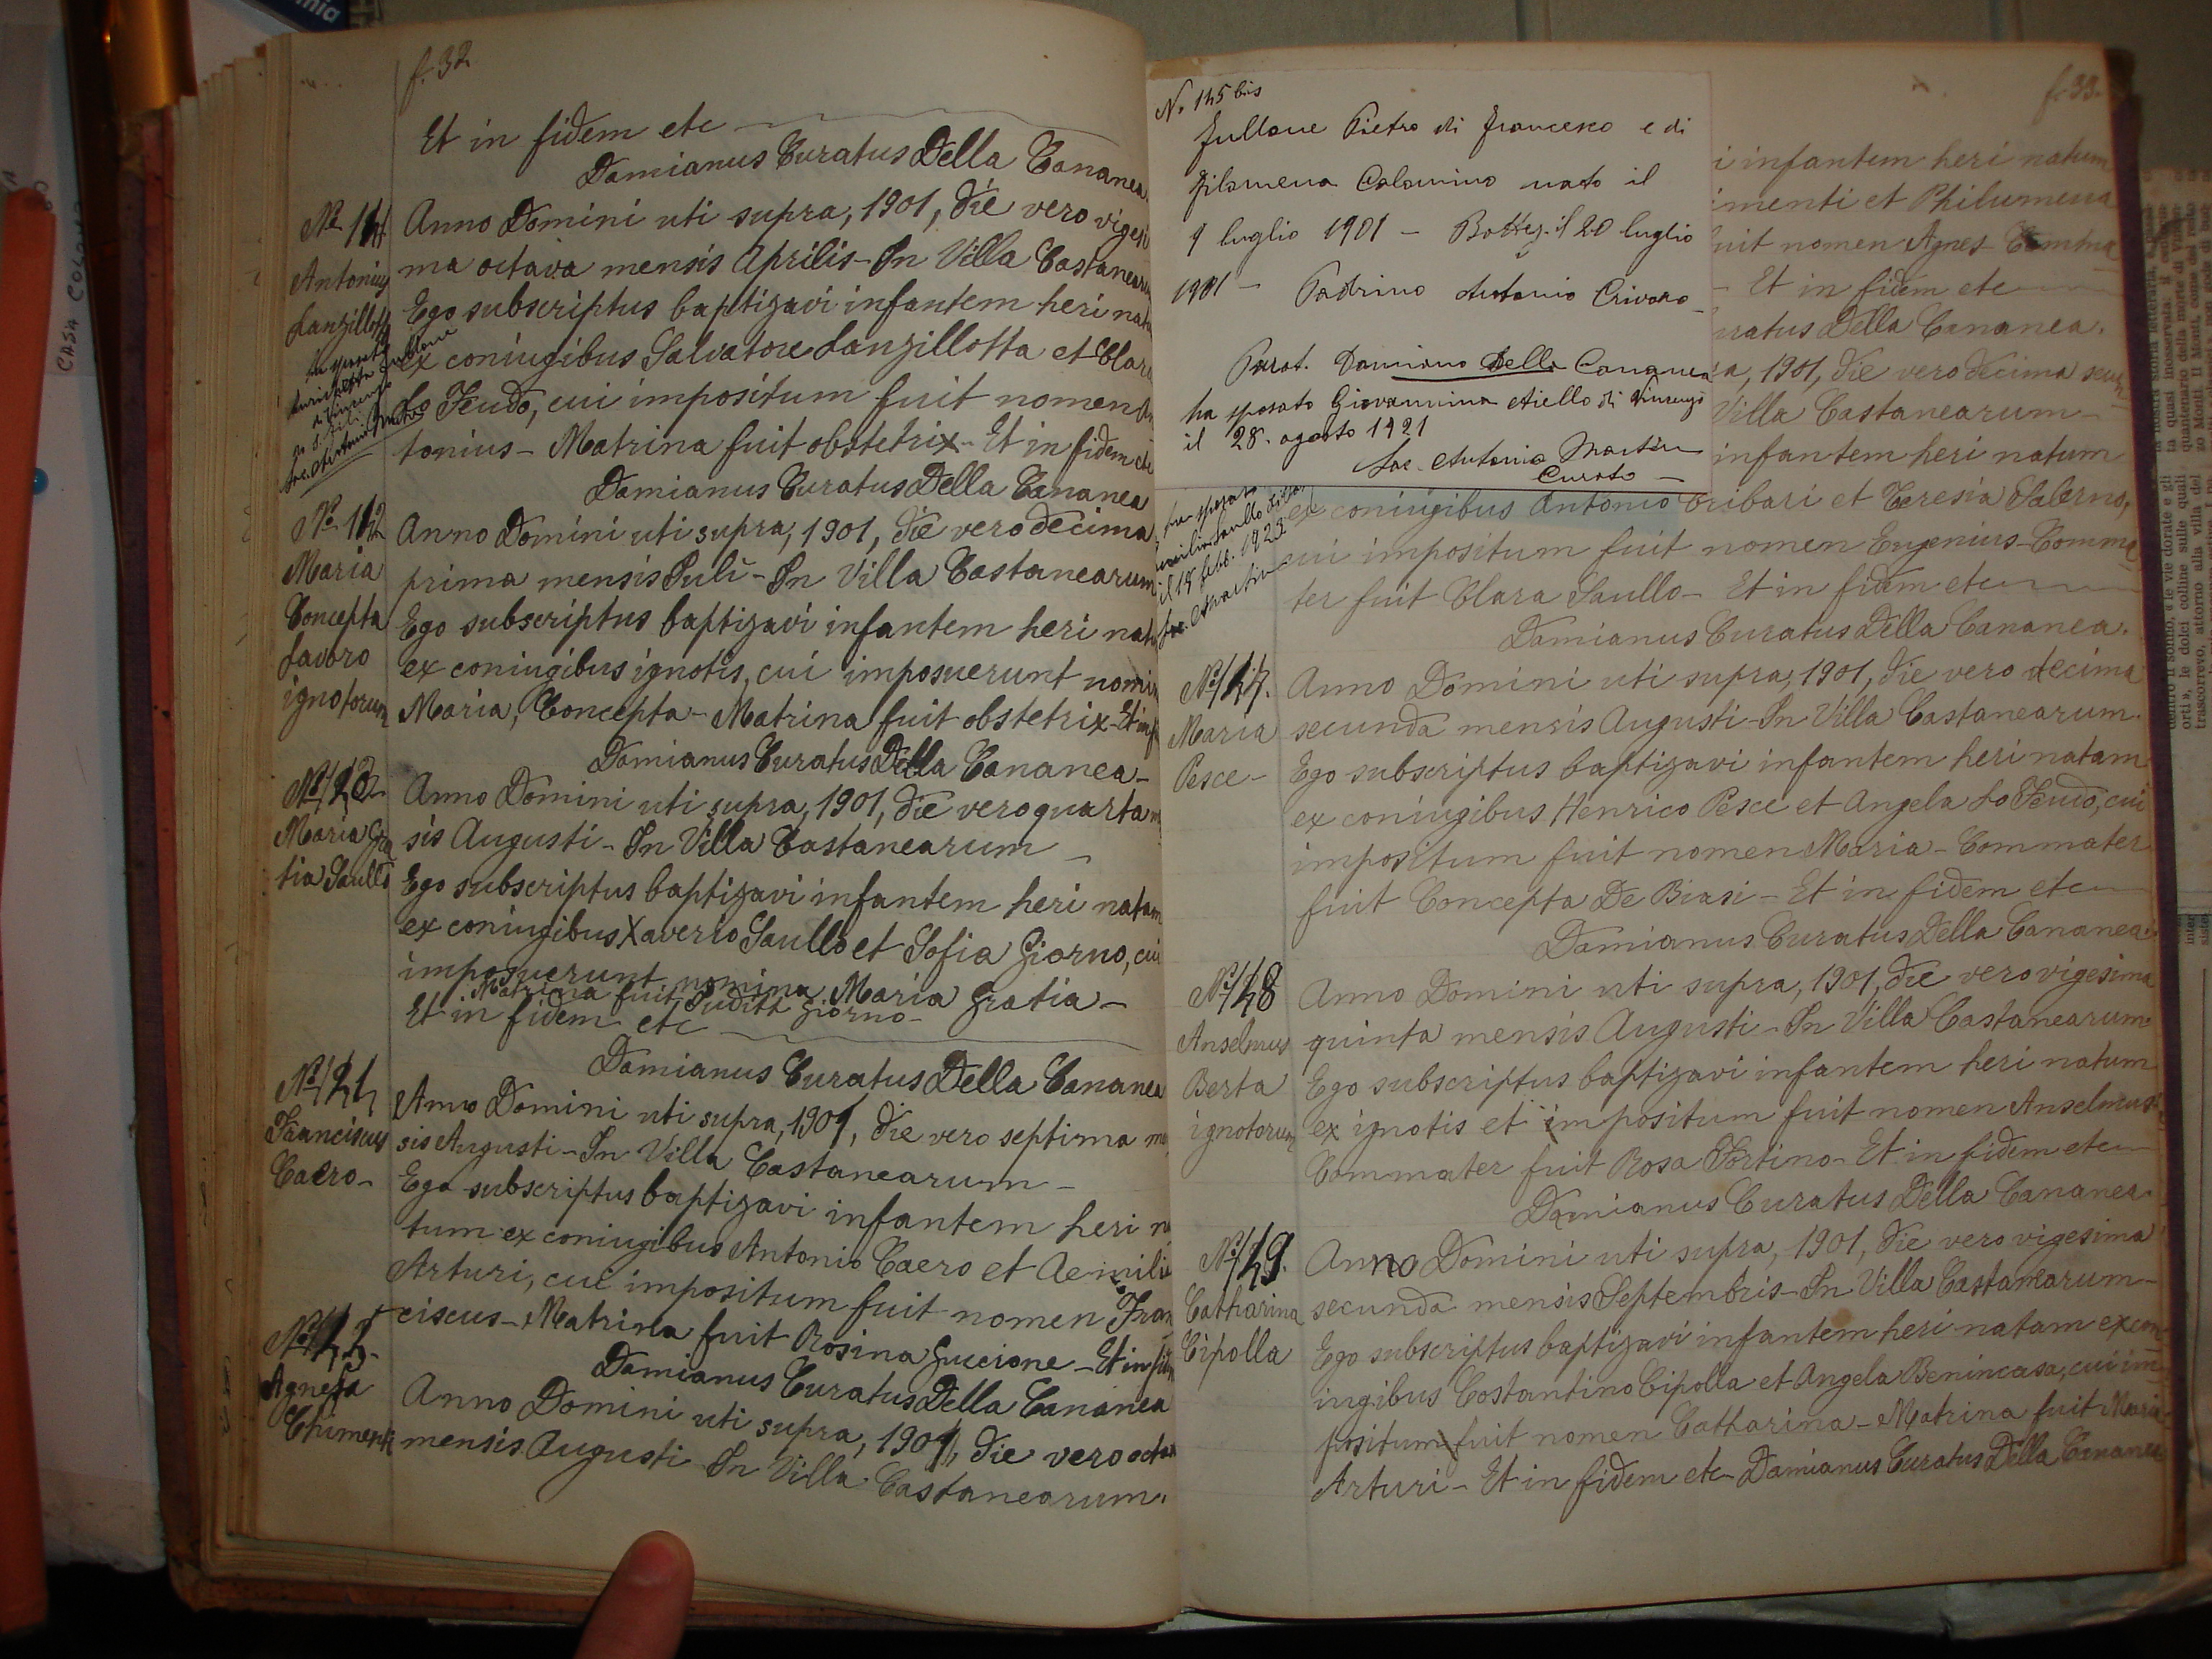 f. 32
Et in fidem etc
Damianus Curatus Della Cananea
Antonius
Lanzillotta
Anno Domini uti supra, 1901, die vero vigesi
ma octava mensis Aprilis - In Villa Castanearum
Ego subscriptus baptizavi infantem heri natu
ex coniugibus Salvatore Lanzillotta et Clara
Lo Feudo, cui impositum fuit nomen An
tonius - Matrina fuit obstetrix - Et in fidem etc
Damianus Curatus Della Cananea
Maria
Concepta
Lavoro
ignotorum
Anno Domini uti supra, 1901, die vero decima
prima mensis Juli - In Villa Castanearum
Ego subscriptus baptizavi infantem heri nata
ex coniugibus ignotis, cui imposuerunt nomin
Maria, Concepta - Matrina fuit obstetrix - Et in f
Damianus Curatus Della Cananea -
Maria Gra
tia Saullo
Anno Domini uti supra, 1901, die vero quarta m
sis Augusti - In Villa Castanearum -
Ego subscriptus baptizavi infantem heri natam
ex coniugibus Xaverio Saullo et Sofia Giorno, cui
imposuerunt nomina Maria Gratia -
Matrina fuit Judith Giorno -
Et in fidem etc
Damianus Curatus Della Cananea
Franciscus
Caero -
Anno Domini uti supra, 1901, die vero septima m
sis Augusti - In Villa Castanearum -
Ego subscriptus baptizavi infantem heri n
tum ex coniugibus Antonio Caero et Aemilia
Arturi, cui impositum fuit nomen Fran
ciscus - Matrina fuit Rosina Guccione - Et in fid
Damianus Curatus Della Cananea
Agnesa
Chimenti
Anno Domini uti supra, 1901, die vero octa
mensis Augusti In Villa Castanearum.
f. 33.
N. 145 bis
Fullone Pietro di Francesco e di
Filomena Calomino nato il
9 luglio 1901 - Battez. il 20 luglio
1901 - Padrino Antonio Crivaro -
Parot. Damiano Della Cananea
ha sposato Giovannina Aiello di Vincenzo
il 28. agosto 1921
Sac. Antonio Martire
Curato -
i infantem heri natum
imenti et Philumena
uit nomen Agnes - Comma
- Et in fidem etc
uratus Della Cananea.
a, 1901, die vero decima secun
Villa Castanearum -
infantem heri natum
ex coniugibus Antonio Bribari et Teresia Salerno,
cui impositum fuit nomen Eugenius - Comma
ter fuit Clara Saullo - Et in fidem etc
Damianus Curatus Della Cananea.
ha sposato
il 18 febb. 1923
Sac. AMartire
No 147.
Maria
Pesce -
Anno Domini uti supra, 1901, die vero decima
secunda mensis Augusti - In Villa Castanearum.
Ego subscriptus baptizavi infantem heri natam
ex coniugibus Henrico Pesce et Angela Lo Feudo, cui
impositum fuit nomen Maria - Commater
fuit Concepta De Biasi - Et in fidem etc
Damianus Curatus Della Cananea.
No 148
Anselmus
Berta
ignotorum
Anno Domini uti supra, 1901, die vero vigesima
quinta mensis Augusti - In Villa Castanearum.
Ego subscriptus baptizavi infantem heri natum
ex ignotis et impositum fuit nomen Anselmus
Commater fuit Rosa Fortino - Et in fidem etc
Damianus Curatus Della Cananea.
No 149.
Catharina
Cipolla
Anno Domini uti supra, 1901, die vero vigesima
secunda mensis Septembris - In Villa Castanearum -
Ego subscriptus baptizavi infantem heri natam ex con
iugibus Costantino Cipolla et Angela Benincasa, cui im
positum fuit nomen Catharina - Matrina fuit Maria
Arturi - Et in fidem etc Damianus Curatus Della Cananea